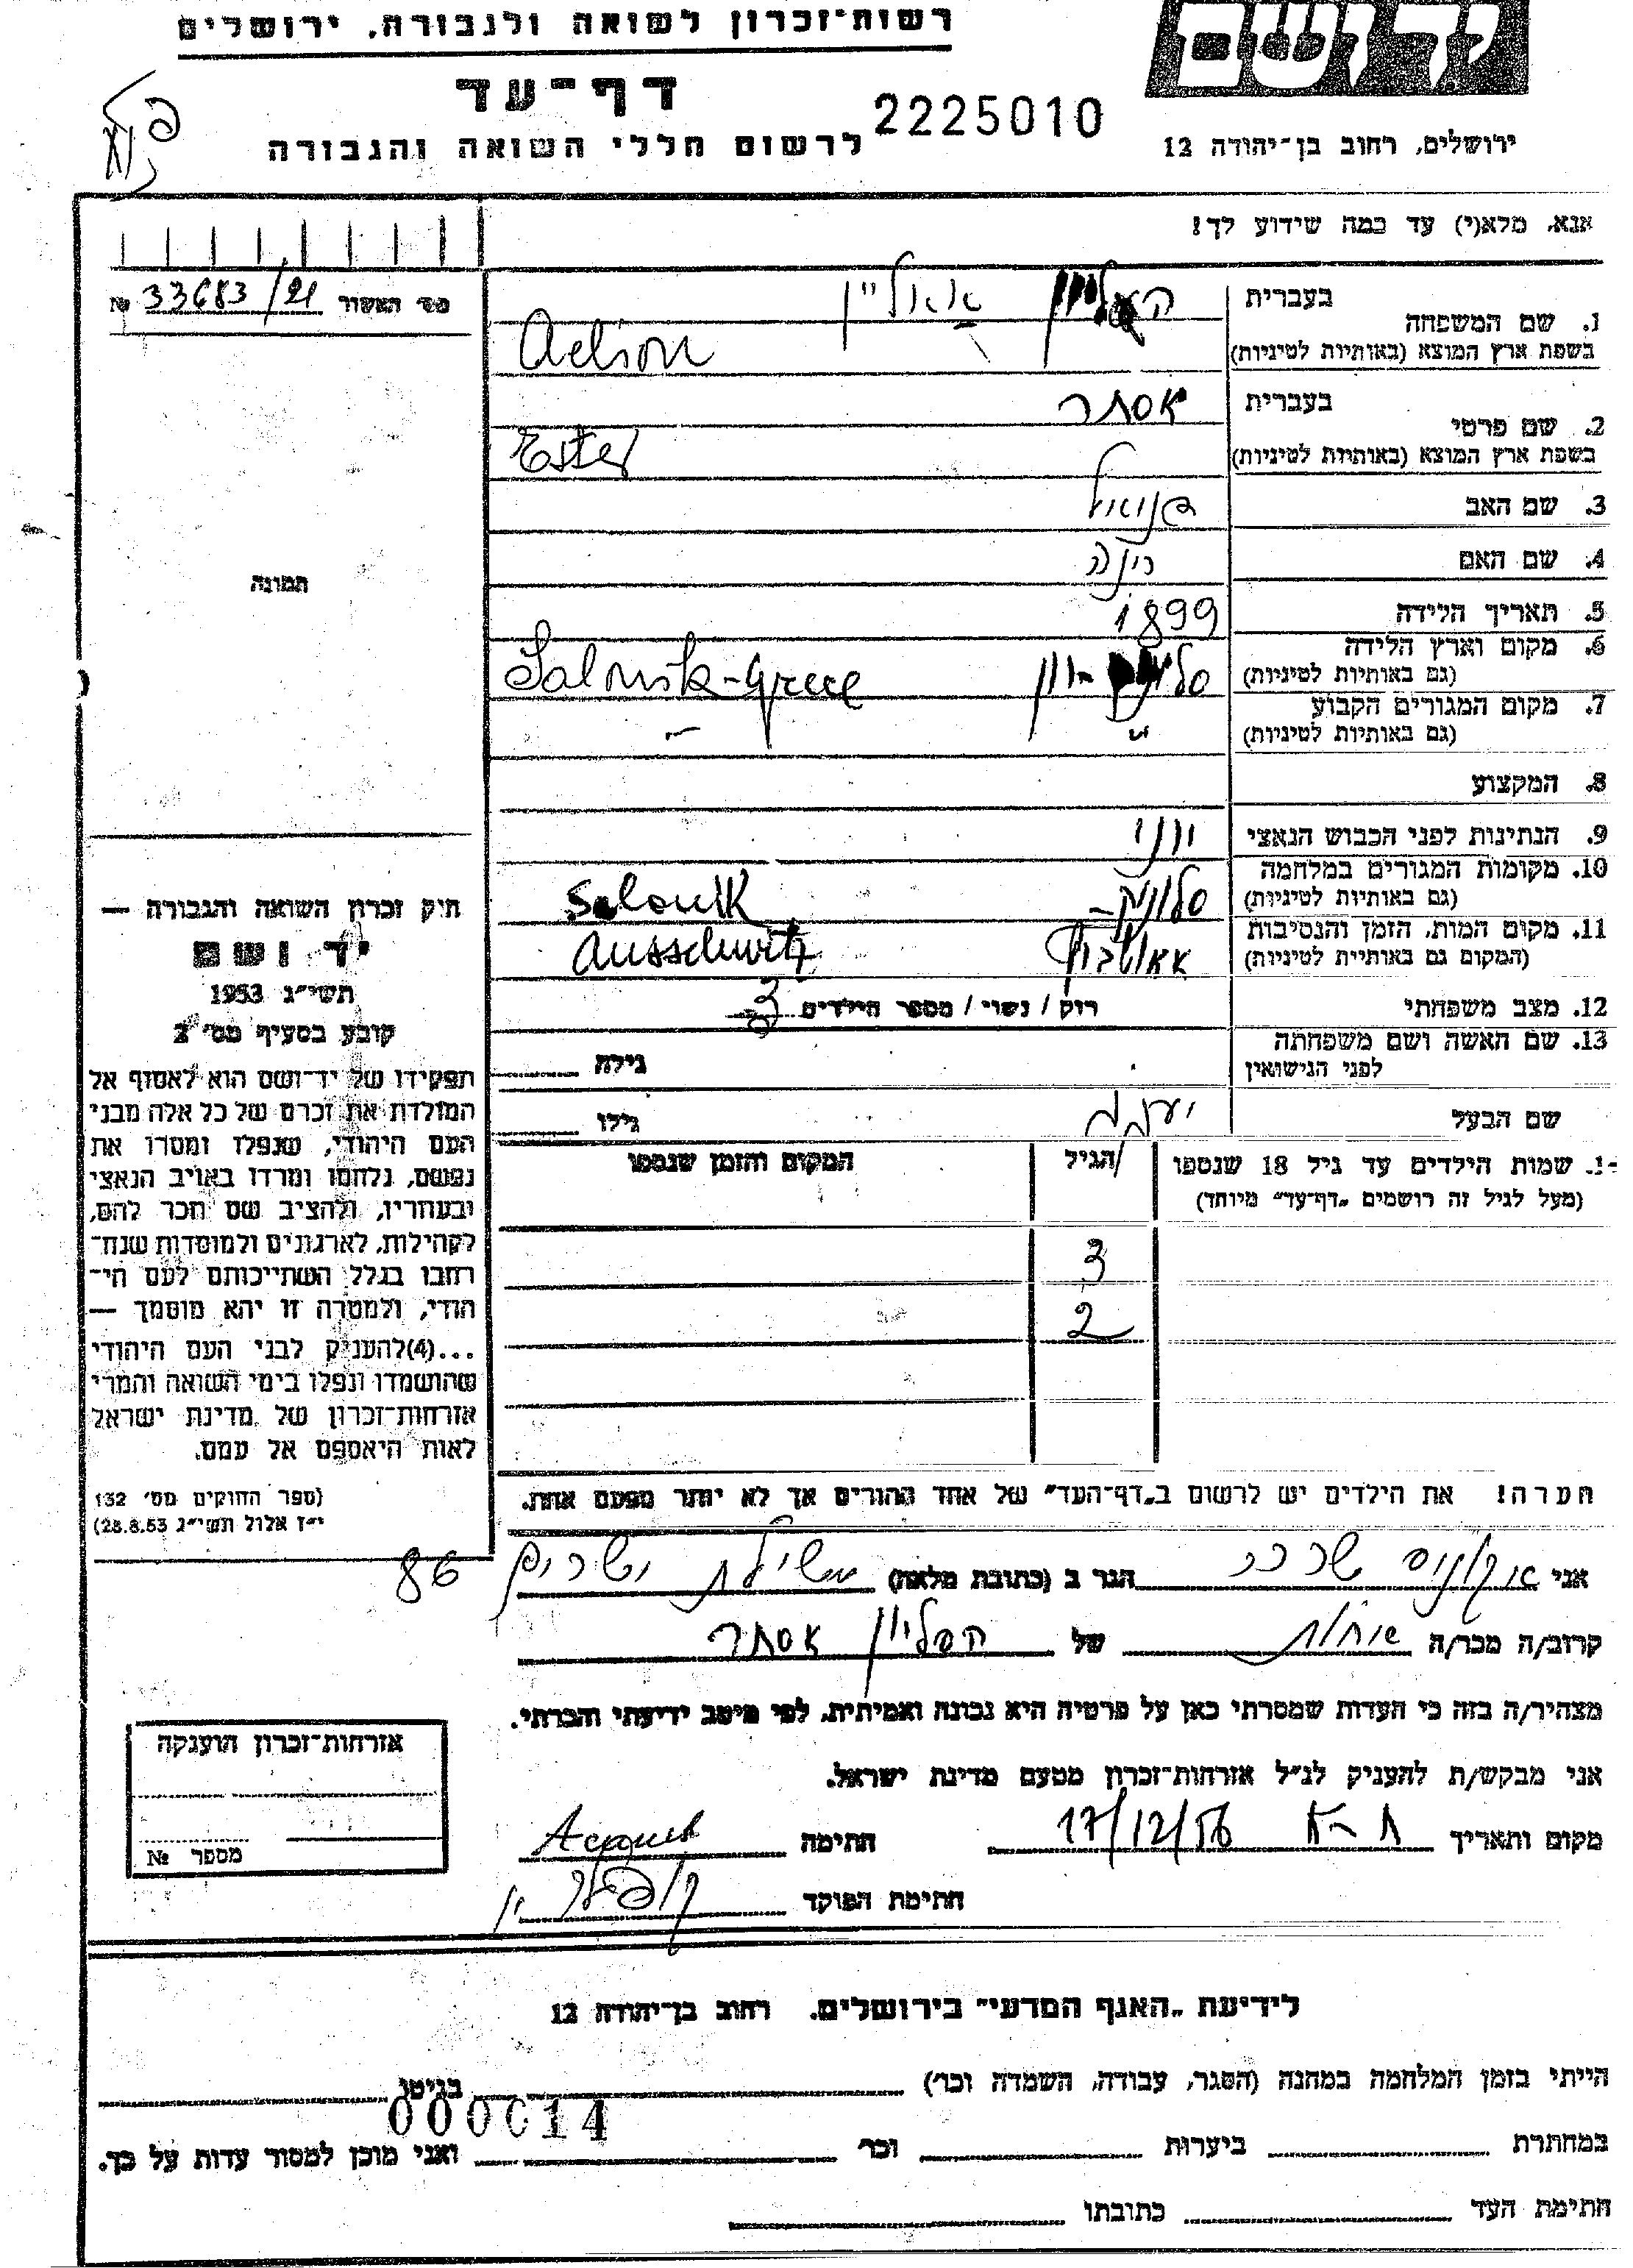 רשות־זכרון לשואה ולגבורה, ירושלים
דף־עד
לרשום חללי השואה והגבורה
2225010
ירושלים, רחוב בן־יהודה 12
אנא, מלא(י) עד כמה שידוע לך!
מס׳ האשור 33683/21 №
1. שם המשפחה
בעברית
בשפת ארץ המוצא (באותיות לטיניות)
2. שם פרטי
בעברית אסתר
בשפת ארץ המוצא (באותיות לטיניות) Ester
3. שם האב
4. שם האם
5. תאריך הלידה 1899
6. מקום וארץ הלידה
(גם באותיות לטיניות) Salonik-Grece
7. מקום המגורים הקבוע
(גם באותיות לטיניות) ״
8. המקצוע
9. הנתינות לפני הכבוש הנאצי יוני
10. מקומות המגורים במלחמה
(גם באותיות לטיניות) סלוניקי Salonik
11. מקום המות, הזמן והנסיבות
(המקום גם באותיית לטיניות) Ausschwitz
12. מצב משפחתי רווק / נשוי / מספר הילדים 3
13. שם האשה ושם משפחתה
לפני הנישואין גילה
שם הבעל יעקב גילו
שמות הילדים עד גיל 18 שנספו הגיל המקום והזמן שנספו
(מעל לגיל זה רושמים „דף־עד״ מיוחד)
3
2
הערה! את הילדים יש לרשום ב„דף־העד״ של אחד ההורים אך לא יותר מפעם אחת.
תמונה
חוק זכרון השואה והגבורה —
יד ושם
תשי״ג 1953
קובע בסעיף מס׳ 2
תפקידו של יד־ושם הוא לאסוף אל
המולדת את זכרם של כל אלה מבני
העם היהודי, שנפלו ומסרו את
נפשם, נלחמו ומרדו באויב הנאצי
ובעוזריו, ולהציב שם וזכר להם,
לקהילות, לארגונים ולמוסדות שנח־
רבו בגלל השתייכותם לעם הי־
הודי, ולמטרה זו יהא מוסמך —
...(4)להעניק לבני העם היהודי
שהושמדו ונפלו בימי השואה והמרי
אזרחות־זכרון של מדינת ישראל
לאות היאספם אל עמם.
(ספר החוקים מס׳ 132
י״ז אלול תשי״ג 28.8.53)
אני הגר ב (כתובת מלאה) 86
קרוב/ה מכר/ה אחות של אסתר
מצהיר/ה בזה כי העדות שמסרתי כאן על פרטיה היא נכונה ואמיתית, לפי מיטב ידיעתי והכרתי.
אני מבקש/ת להעניק לנ״ל אזרחות־זכרון מטעם מדינת ישראל.
מקום ותאריך 17/12/56 חתימה
חתימת הפוקד
אזרחות־זכרון הוענקה
מספר №
לידיעת „האגף המדעי״ בירושלים, רחוב בן־יהודה 12
הייתי בזמן המלחמה במחנה (הסגר, עבודה, השמדה וכר׳) בגיטו
000014
במחתרת ביערות וכר׳ ואני מוכן למסור עדות על כך.
חתימת העד כתובתו